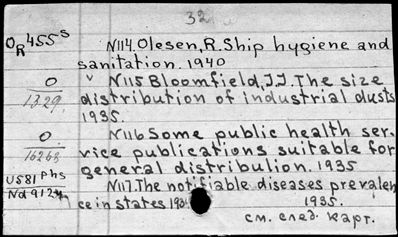 32
O/R 455 s
N114. Olesen, R. Ship hygiene and
sanitation. 1940
O/1329.
v N115 Bloomfield, J.J. The size
distribution of industrial dusts
1935.
O./16268
N116 Some public health ser-
vice publications suitable for
general distribution. 1935
US81 Phs
Nd 912
N117. The notifiable diseases prevalen
ce in states 193
1935.
см. след. карт.